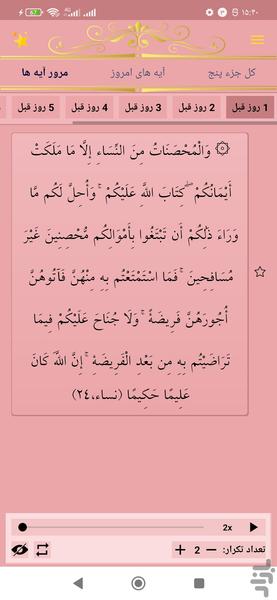 ۱۵:۴۰
67
4G
کل جزء پنج
آیه های امروز
مرور آیه ها
1 روز قبل
2 روز قبل
3 روز قبل
4 روز قبل
5 روز قبل
۞ وَالْمُحْصَنَاتُ مِنَ النِّسَاءِ إِلَّا مَا مَلَكَتْ
أَيْمَانُكُمْ ۖ كِتَابَ اللَّهِ عَلَيْكُمْ ۚ وَأُحِلَّ لَكُم مَّا
وَرَاءَ ذَٰلِكُمْ أَن تَبْتَغُوا بِأَمْوَالِكُم مُّحْصِنِينَ غَيْرَ
مُسَافِحِينَ ۚ فَمَا اسْتَمْتَعْتُم بِهِ مِنْهُنَّ فَآتُوهُنَّ
أُجُورَهُنَّ فَرِيضَةً ۚ وَلَا جُنَاحَ عَلَيْكُمْ فِيمَا
تَرَاضَيْتُم بِهِ مِن بَعْدِ الْفَرِيضَةِ ۚ إِنَّ اللَّهَ كَانَ
عَلِيمًا حَكِيمًا (نساء،۲۴)
2x
تعداد تکرار: − 2 +
بازار